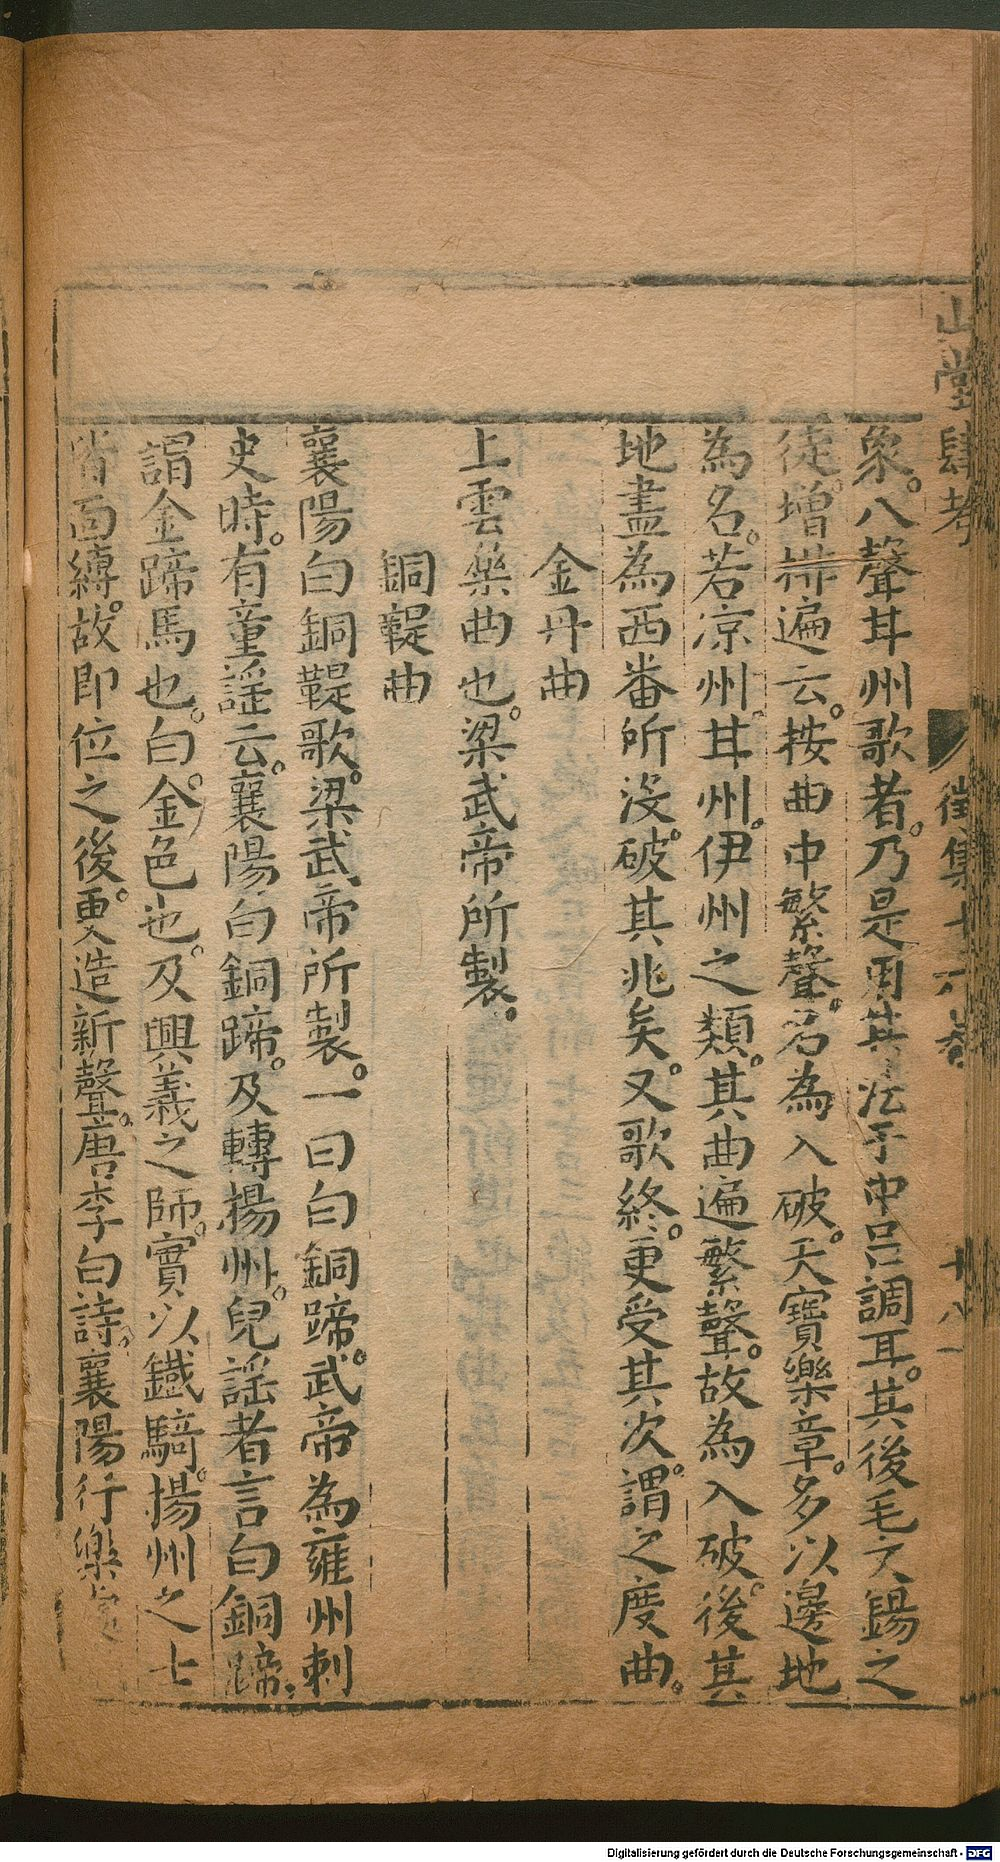 山堂肆考 徵集十六卷 十八
象。八聲甘州歌者。乃是用其法于中呂調耳。其後毛文錫之
徒。增排遍云。按曲中繁聲。名為入破。天寶樂章。多以邊地
為名。若凉州。甘州。伊州之類。其曲遍繁聲。故為入破。後其
地盡為西番所沒。破其兆矣。又歌終。更受其次。謂之度曲。
金丹曲
上雲樂曲也。梁武帝所製。
銅鞮曲
襄陽白銅鞮歌。梁武帝所製。一曰白銅蹄。武帝為雍州刺
史時。有童謡云。襄陽白銅蹄。及轉揚州。兒謡者言白銅蹄。
謂金蹄馬也。白。金色也。及興義之師。實以鐵騎。揚州之士
皆面縛。故即位之後。更造新聲。唐李白詩。襄陽行樂處
Digitalisierung gefördert durch die Deutsche Forschungsgemeinschaft - DFG